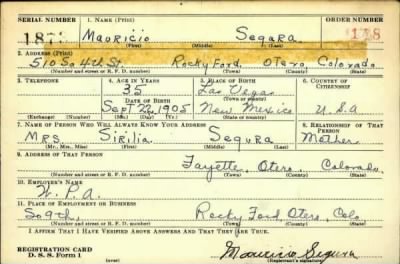 SERIAL NUMBER 1. NAME (Print) ORDER NUMBER
Mauricio Segura
(First) (Middle) (Last)
2. ADDRESS (Print)
510 So 4th St. Rocky Ford, Otero, Colorado
(Number and street or R. F. D. number) (Town) (County) (State)
3. TELEPHONE 4. AGE IN YEARS 5. PLACE OF BIRTH 6. COUNTRY OF CITIZENSHIP
35 Las Vegas
DATE OF BIRTH (Town or county)
Sept 22, 1905 New Mexico U.S.A
(Exchange) (Number) (Mo.) (Day) (Yr.) (State or country)
7. NAME OF PERSON WHO WILL ALWAYS KNOW YOUR ADDRESS 8. RELATIONSHIP OF THAT PERSON
Mrs Sirilia Segura Mother
(Mr., Mrs., Miss) (First) (Middle) (Last)
9. ADDRESS OF THAT PERSON
Fayette, Otero Colorado
(Number and street or R. F. D. number) (Town) (County) (State)
10. EMPLOYER'S NAME
W. P. A.
11. PLACE OF EMPLOYMENT OR BUSINESS
So 9th, Rocky Ford Otero, Colo
(Number and street or R. F. D. number) (Town) (County) (State)
I AFFIRM THAT I HAVE VERIFIED ABOVE ANSWERS AND THAT THEY ARE TRUE.
REGISTRATION CARD
D. S. S. Form 1 Mauricio Segura
(Registrant's signature)